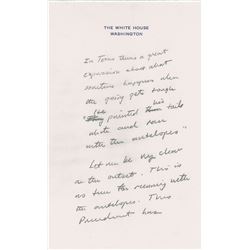 THE WHITE HOUSE
WASHINGTON
In Texas theres a great
expression about what
sometimes happens when
the going gets tough
painted his tails
white and ran
with the antelopes"
Let me be very clear
at the outset. This is
no time for running with
the antelope. This
President has